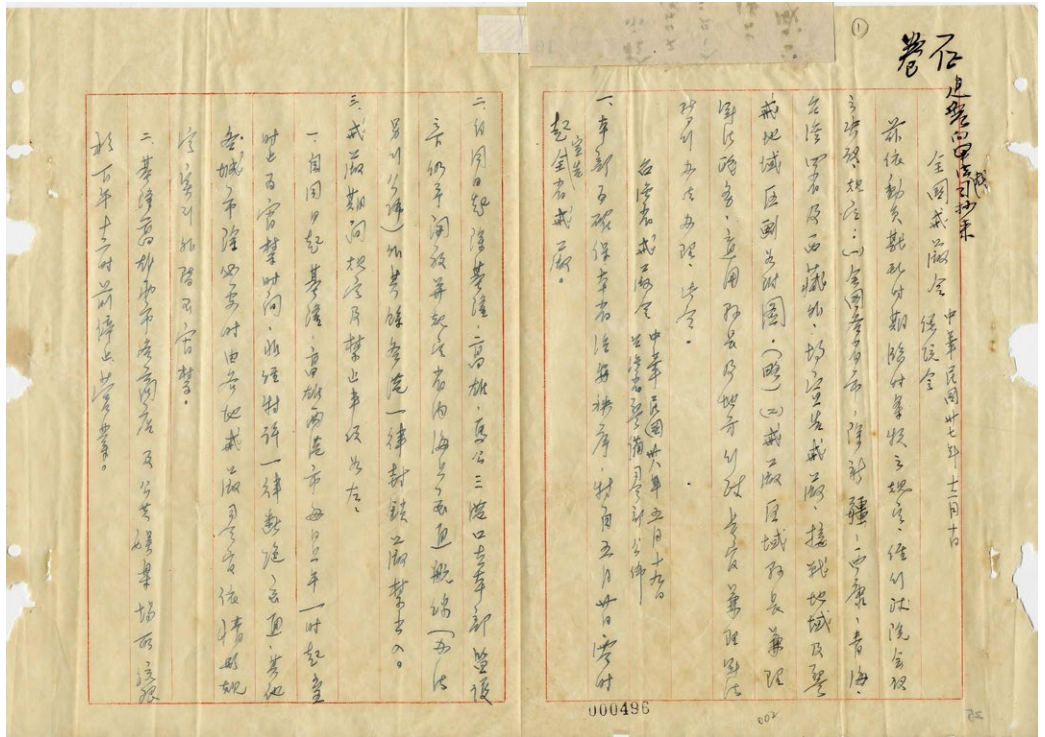 ①
全國戒嚴令
中華民國卅七年十二月十日
總統令
茲依動員戡亂時期臨時條款之規定，經行政院會議
之決議，規定：(一)全國各省市，除新疆、西康、青海、
台灣四省及西藏外，均宣告戒嚴，接戰地域及警
戒地域區劃如附圖，(略)(二)戒嚴區域縣長兼理
軍法職務，適用縣長及地方行政長官兼理軍法
辦法辦理，此令。
台灣省戒嚴令
中華民國卅八年五月十九日
台灣省警備司令部公佈
一、本部為確保本省治安秩序，特自五月廿日零時
宣告
起全省戒嚴。
二、自同日起除基隆、高雄、馬公三港口在本部監護
下仍予開放並規定省內海上交通航線（辦法
另行公佈）外其餘各港一律封鎖嚴禁出入。
三、戒嚴期間規定及禁止事項如左：
一、自同日起基隆、高雄兩港市每日上午一時起至
時止為宵禁時間，非經特許一律斷絕交通，其他
各城市除必要時由各地戒嚴司令官依情形規
定實行外暫不宵禁。
二、基隆高雄兩市各商店及公共娛樂場所該限
於下午十二時前停止營業。
000496
002